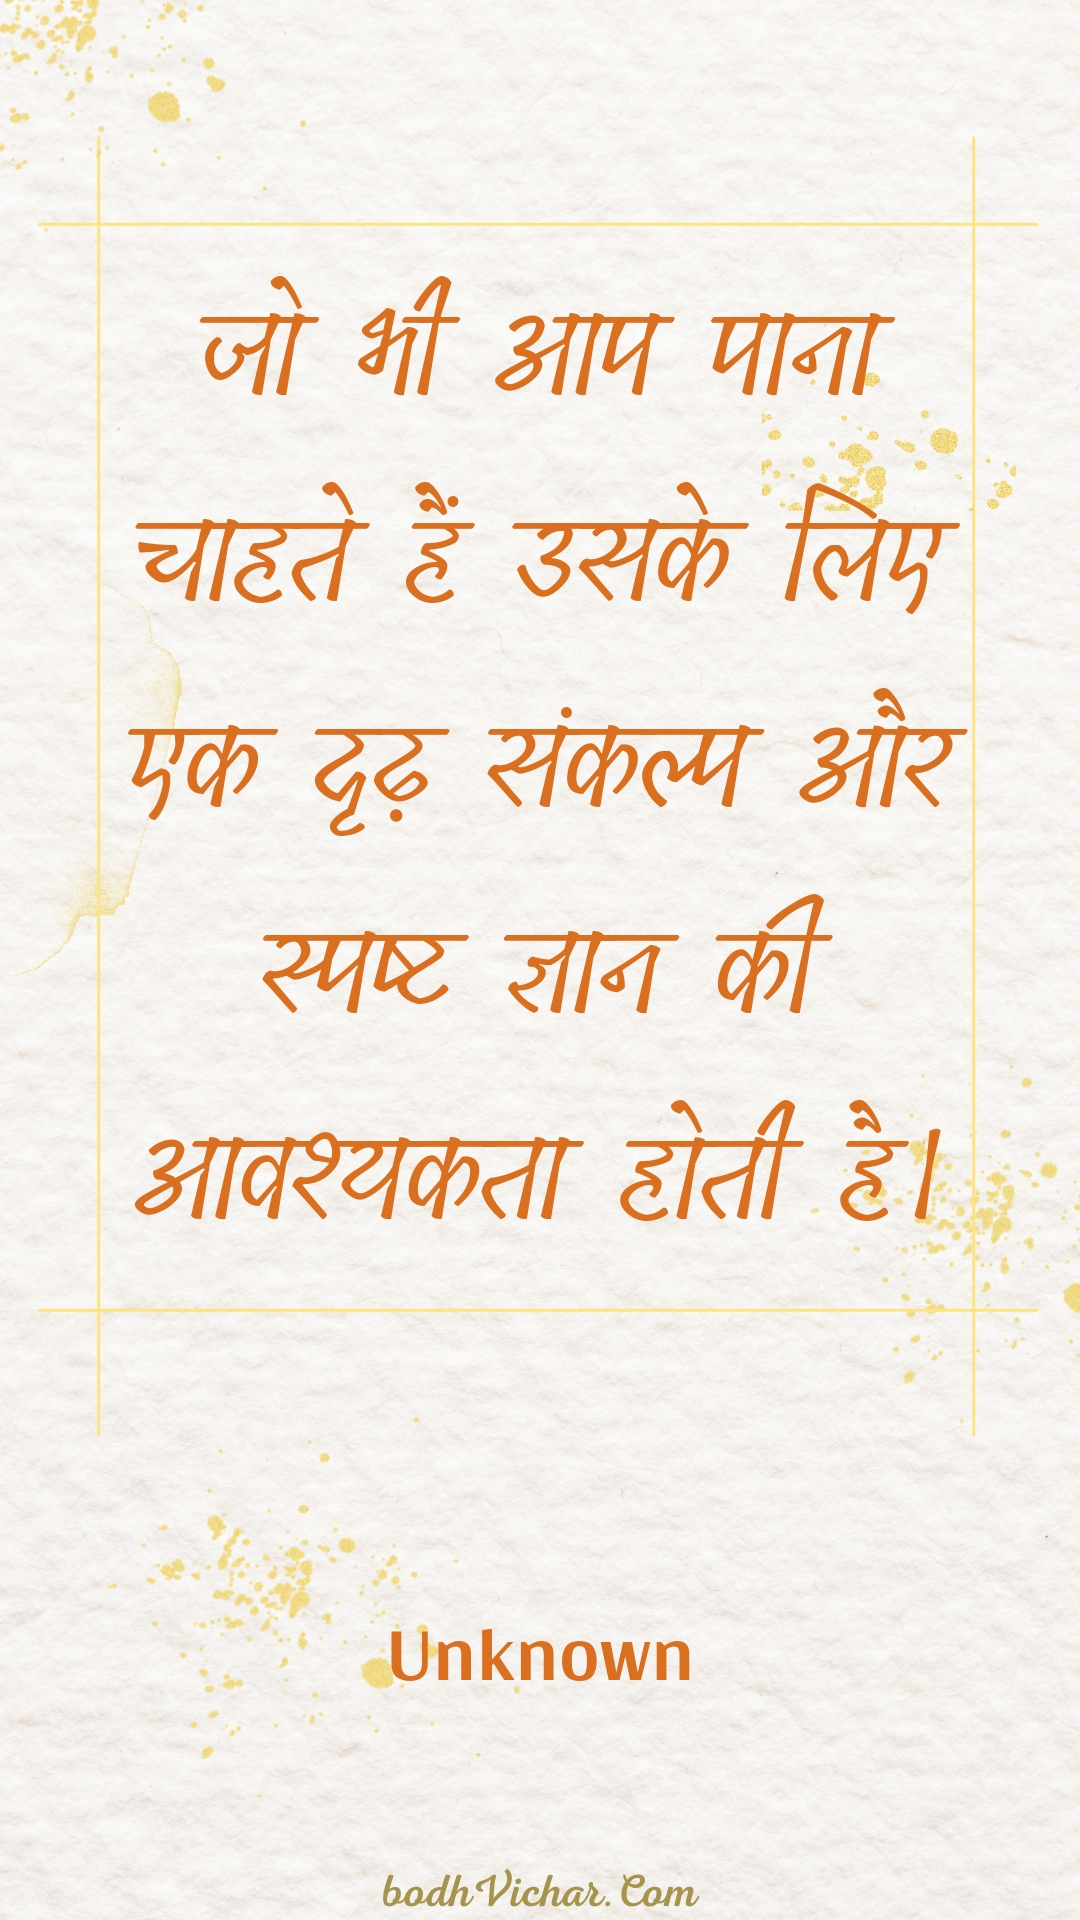 जो भी आप पाना
चाहते हैं उसके लिए
एक दृढ़ संकल्प और
स्पष्ट ज्ञान की
आवश्यकता होती है।
Unknown
bodhVichar.Com